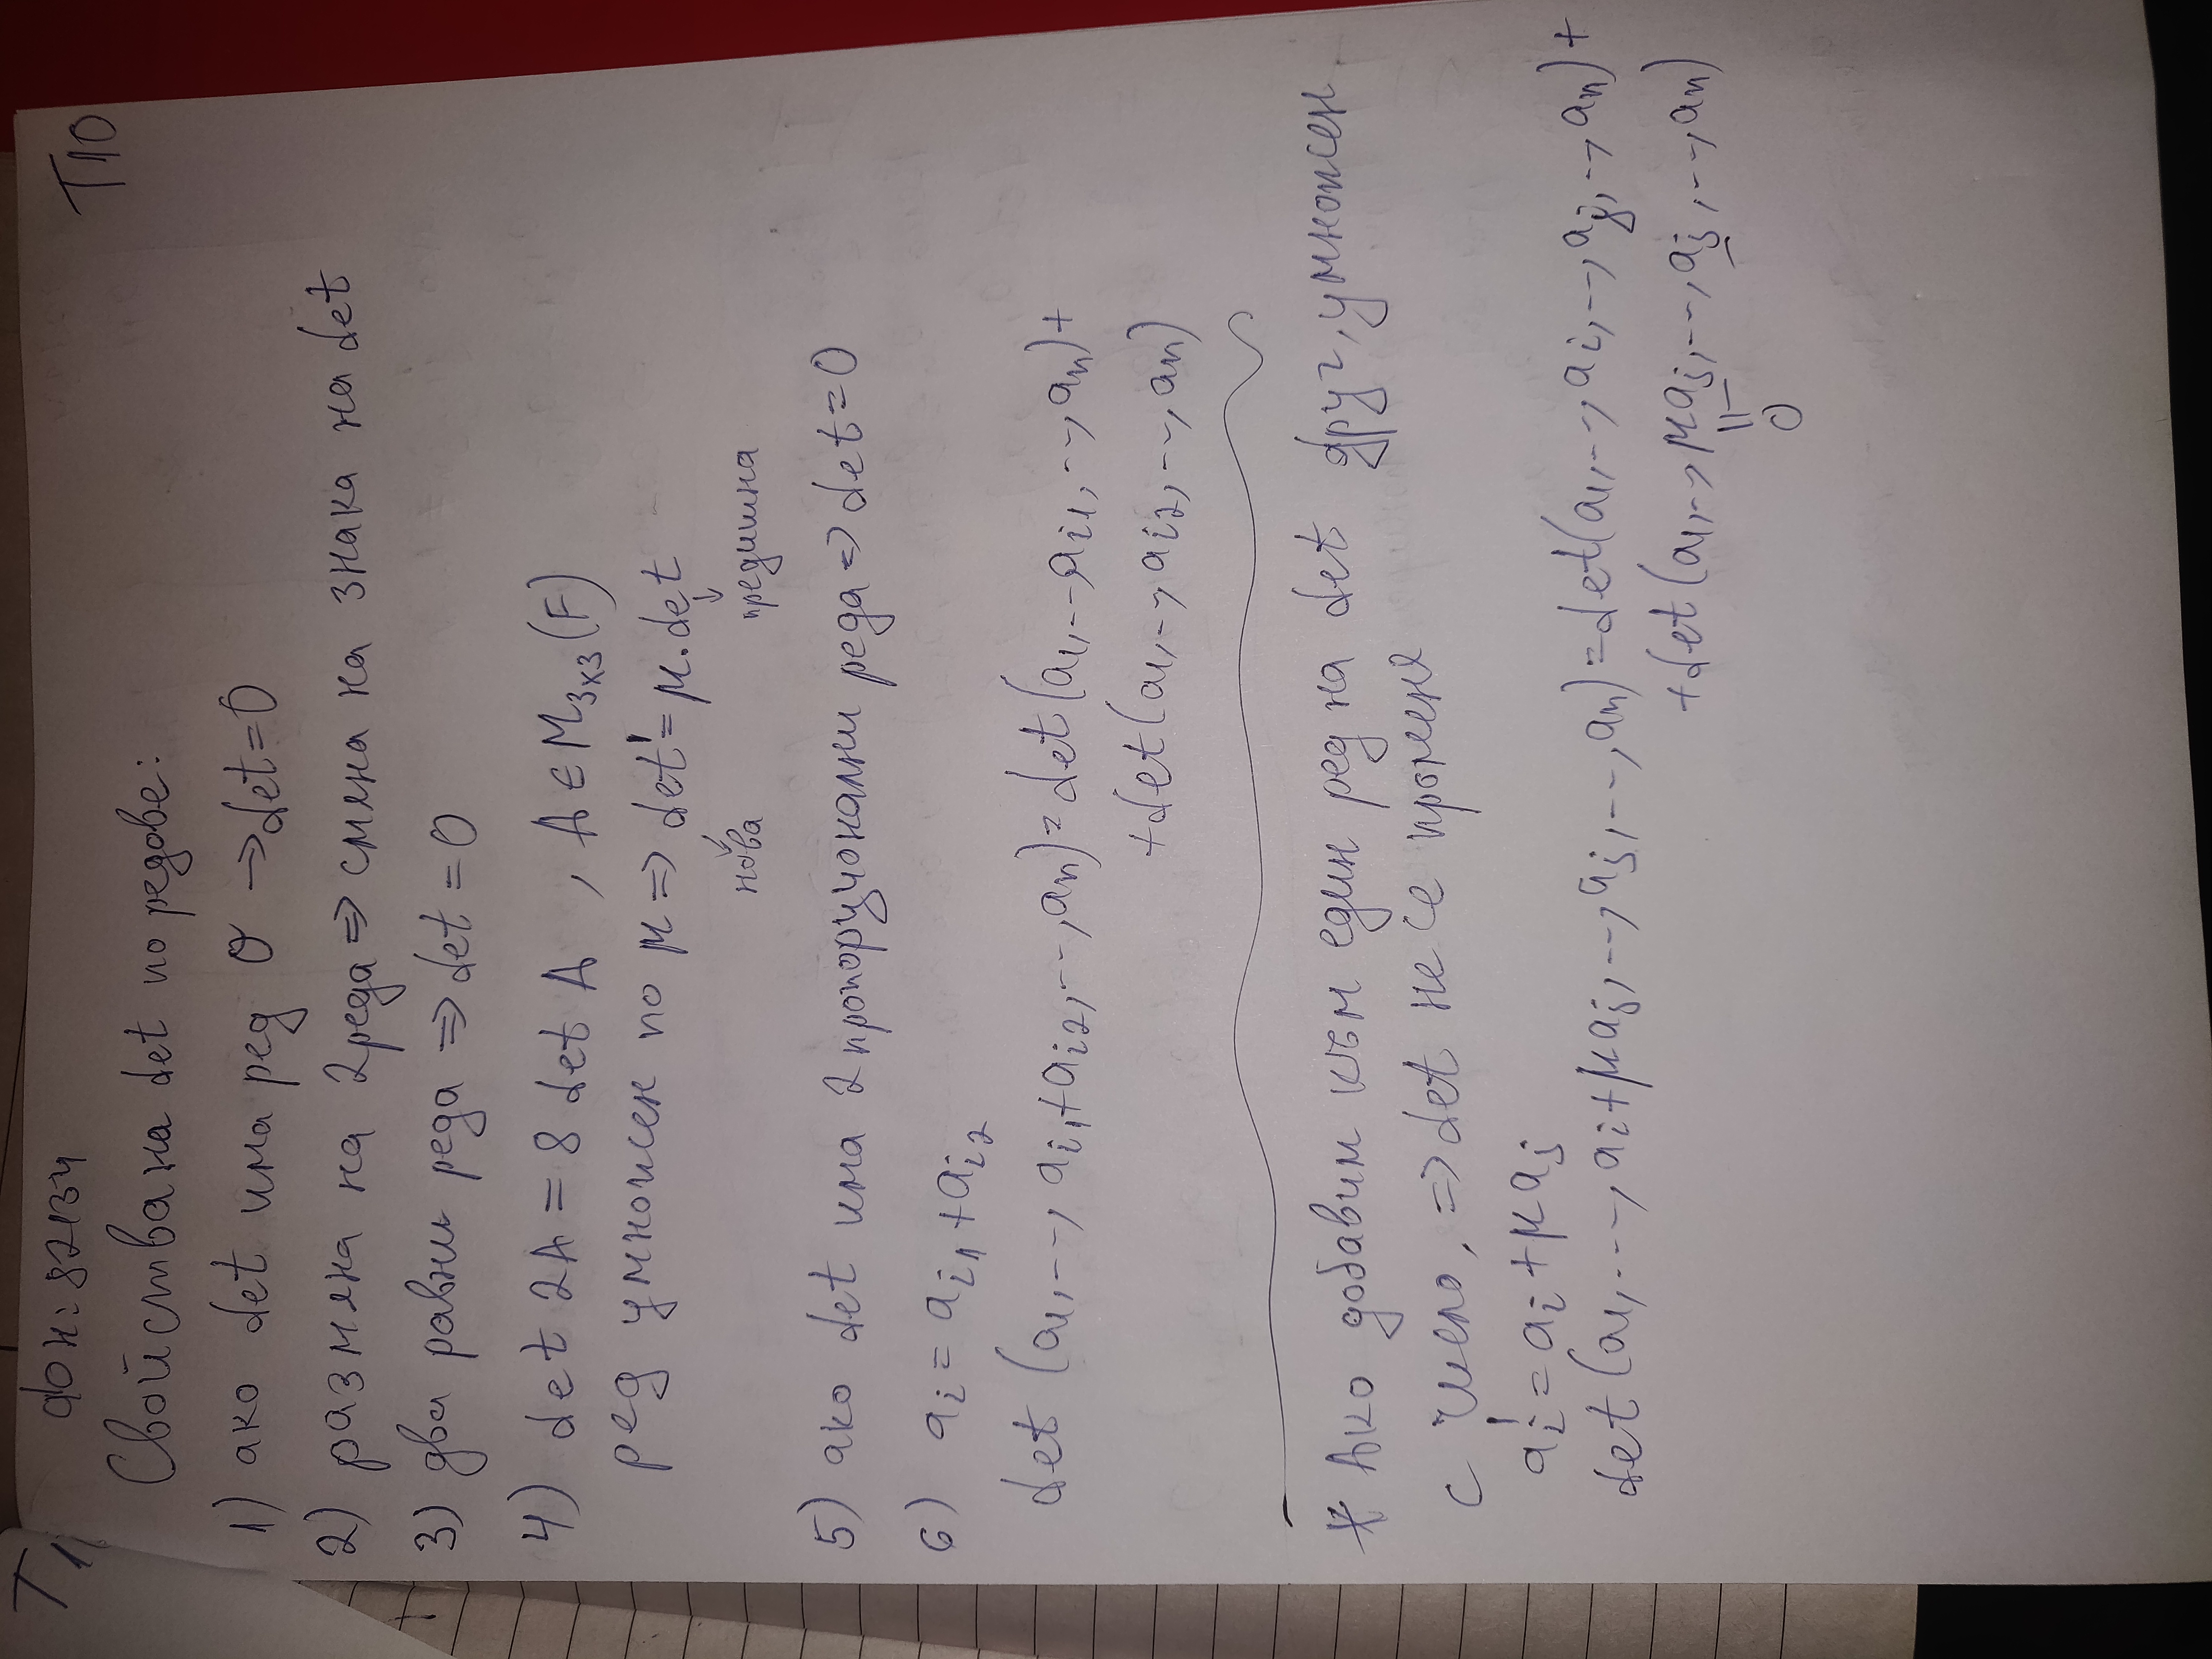 T1
фн: 82134
T10
Свойства на det по редове:
1) ако det има ред 0 → det = 0
2) размяна на 2 реда => смяна на знака на det
3) два равни реда => det = 0
4) det 2A = 8 det A , A ∈ M₃ₓ₃(F)
ред умножен по μ => det' = μ.det
нова предишна
5) ако det има 2 пропорционални реда => det = 0
6) aᵢ = aᵢ₁ + aᵢ₂
det (a₁, ..., aᵢ₁+aᵢ₂, ..., aₙ) = det(a₁, .., aᵢ₁, .., aₙ) +
+ det(a₁, .., aᵢ₂, .., aₙ)
* Ако добавим към един ред на det друг, умножен
с число, => det не се променя
aᵢ' = aᵢ + μaⱼ
det (a₁, ..., aᵢ+μaⱼ, .., aⱼ, ..., aₙ) = det(a₁, .., aᵢ, .., aⱼ, .., aₙ) +
+ det (a₁, .., μaⱼ, .., aⱼ, .., aₙ)
=
0